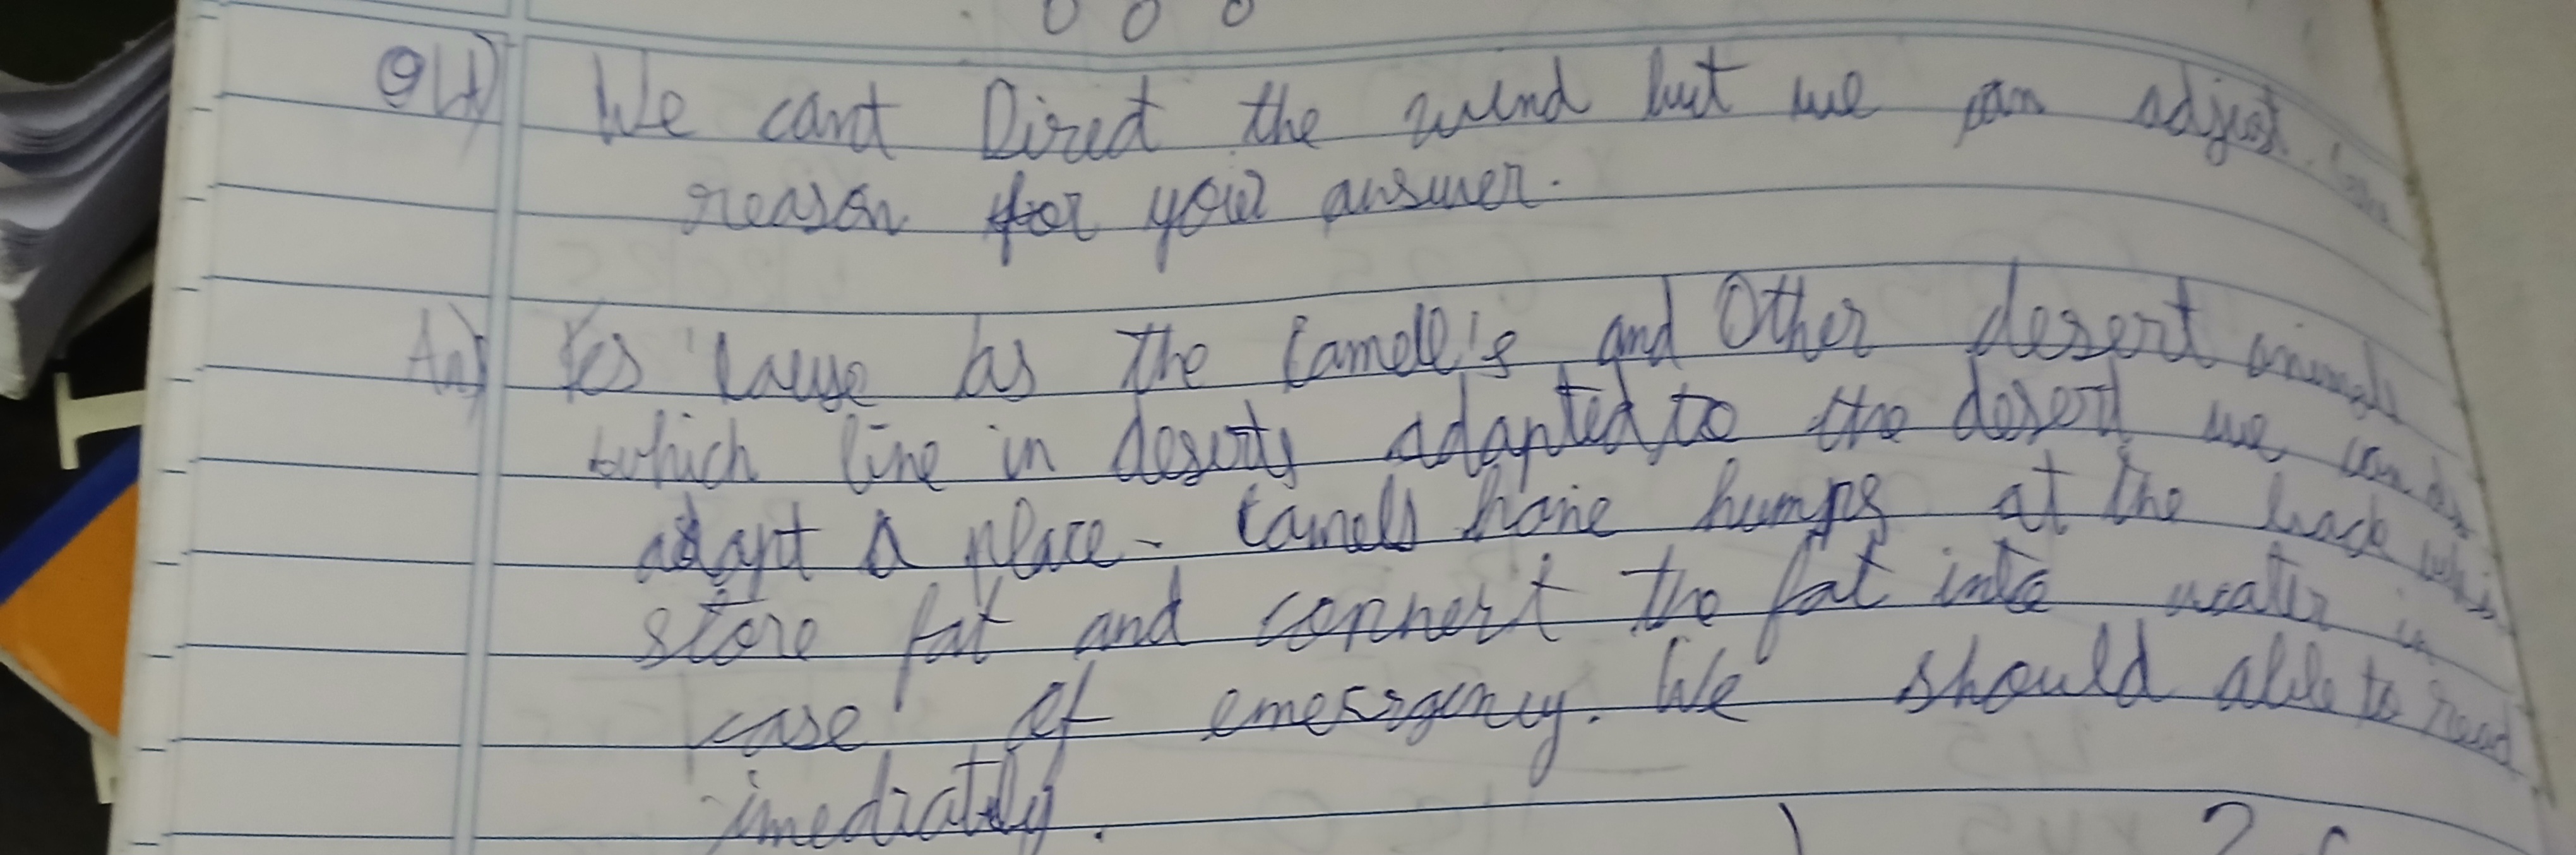 Q4) We cant Direct the wind but we can adjust.
reason for your answer.
An) Yes 'cause as the Camell's and Other desert animals
which live in deserts adapted to the desert we can
adapt a place. Camels have humps at the back
store fat and convert the fat into water in
case of emesrgency. We should able to
imediatly.